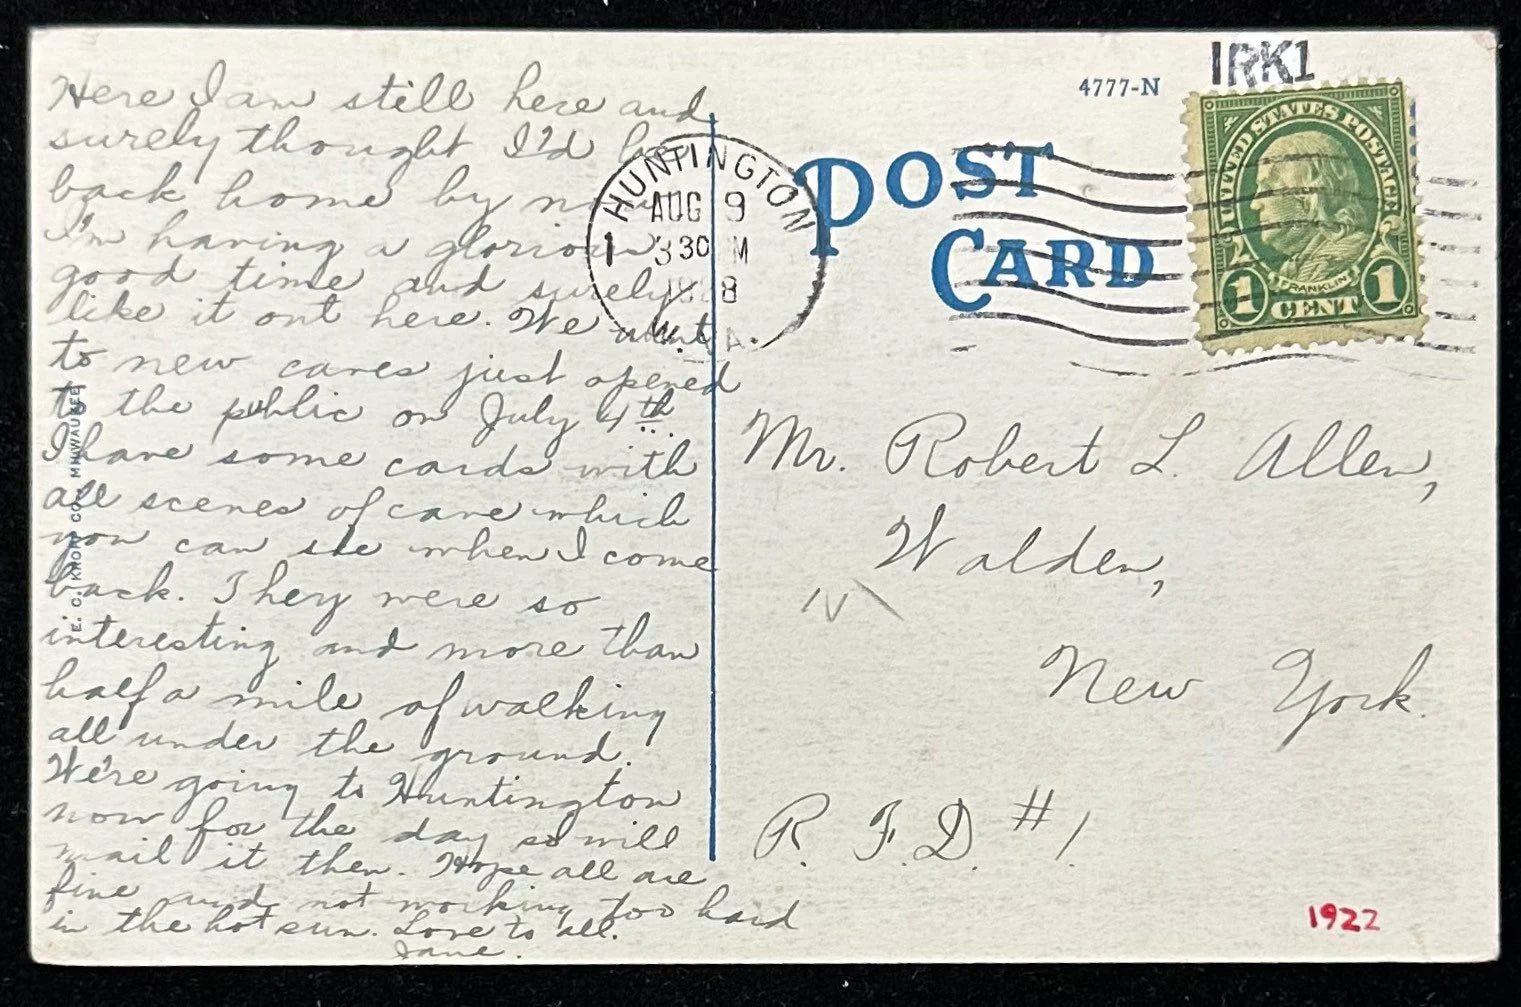 Here I am still here and
surely thought I'd be
back home by now
I'm having a glorious
good time and surely
like it out here. We went
to new caves just opened
to the public on July 4th
I have some cards with
all scenes of cave which
you can see when I come
back. They were so
interesting and more than
half a mile of walking
all under the ground.
We're going to Huntington
now for the day so will
mail it then. Hope all are
fine and not working too hard
in the hot sun. Love to all.
Jane.
E. C. KROPP CO., MILWAUKEE
HUNTINGTON
AUG 9
1 330 M
8
W. VA.
4777-N
IRK1
POST
CARD
UNITED STATES POSTAGE
FRANKLIN
1 CENT 1
Mr. Robert L. Allen,
Walden,
New York.
R. F. D. #1.
1922